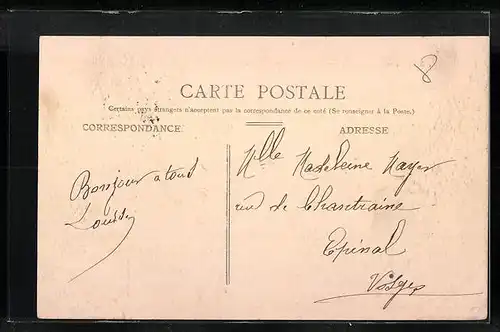 CARTE POSTALE
Certains pays étrangers n'acceptent pas la correspondance de ce coté (Se renseigner à la Poste.)
CORRESPONDANCE
ADRESSE
Mlle Madeleine Mayer
rue de Chantraine
Epinal
Vosges
Bonjour a tous